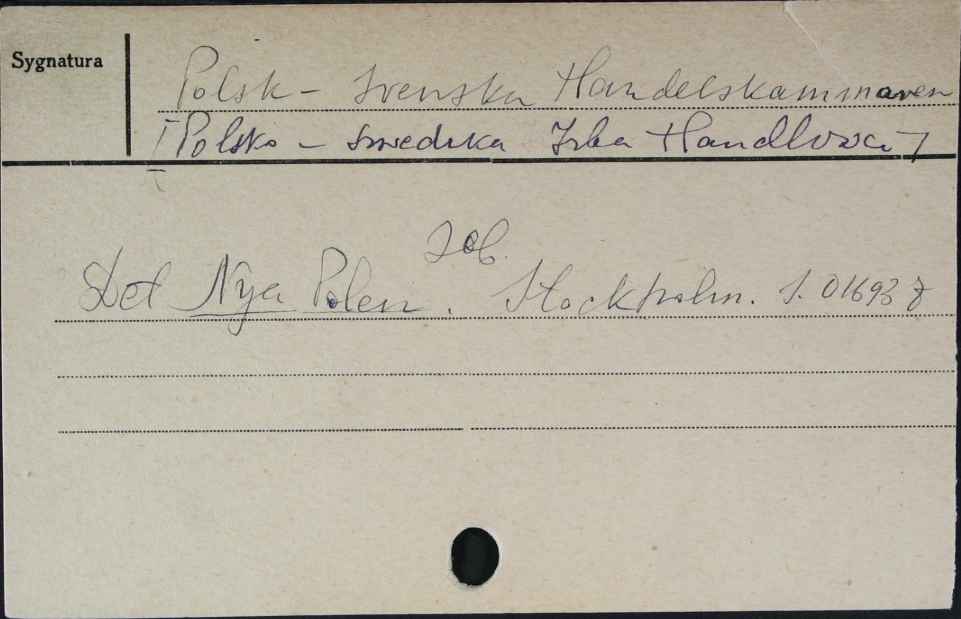 Sygnatura
Polsk - Svenska Handelskammaren
[Polsko - Szwedzka Izba Handlowa]
Zob.
Det Nya Polen. Stockholm. S. 01693 Z